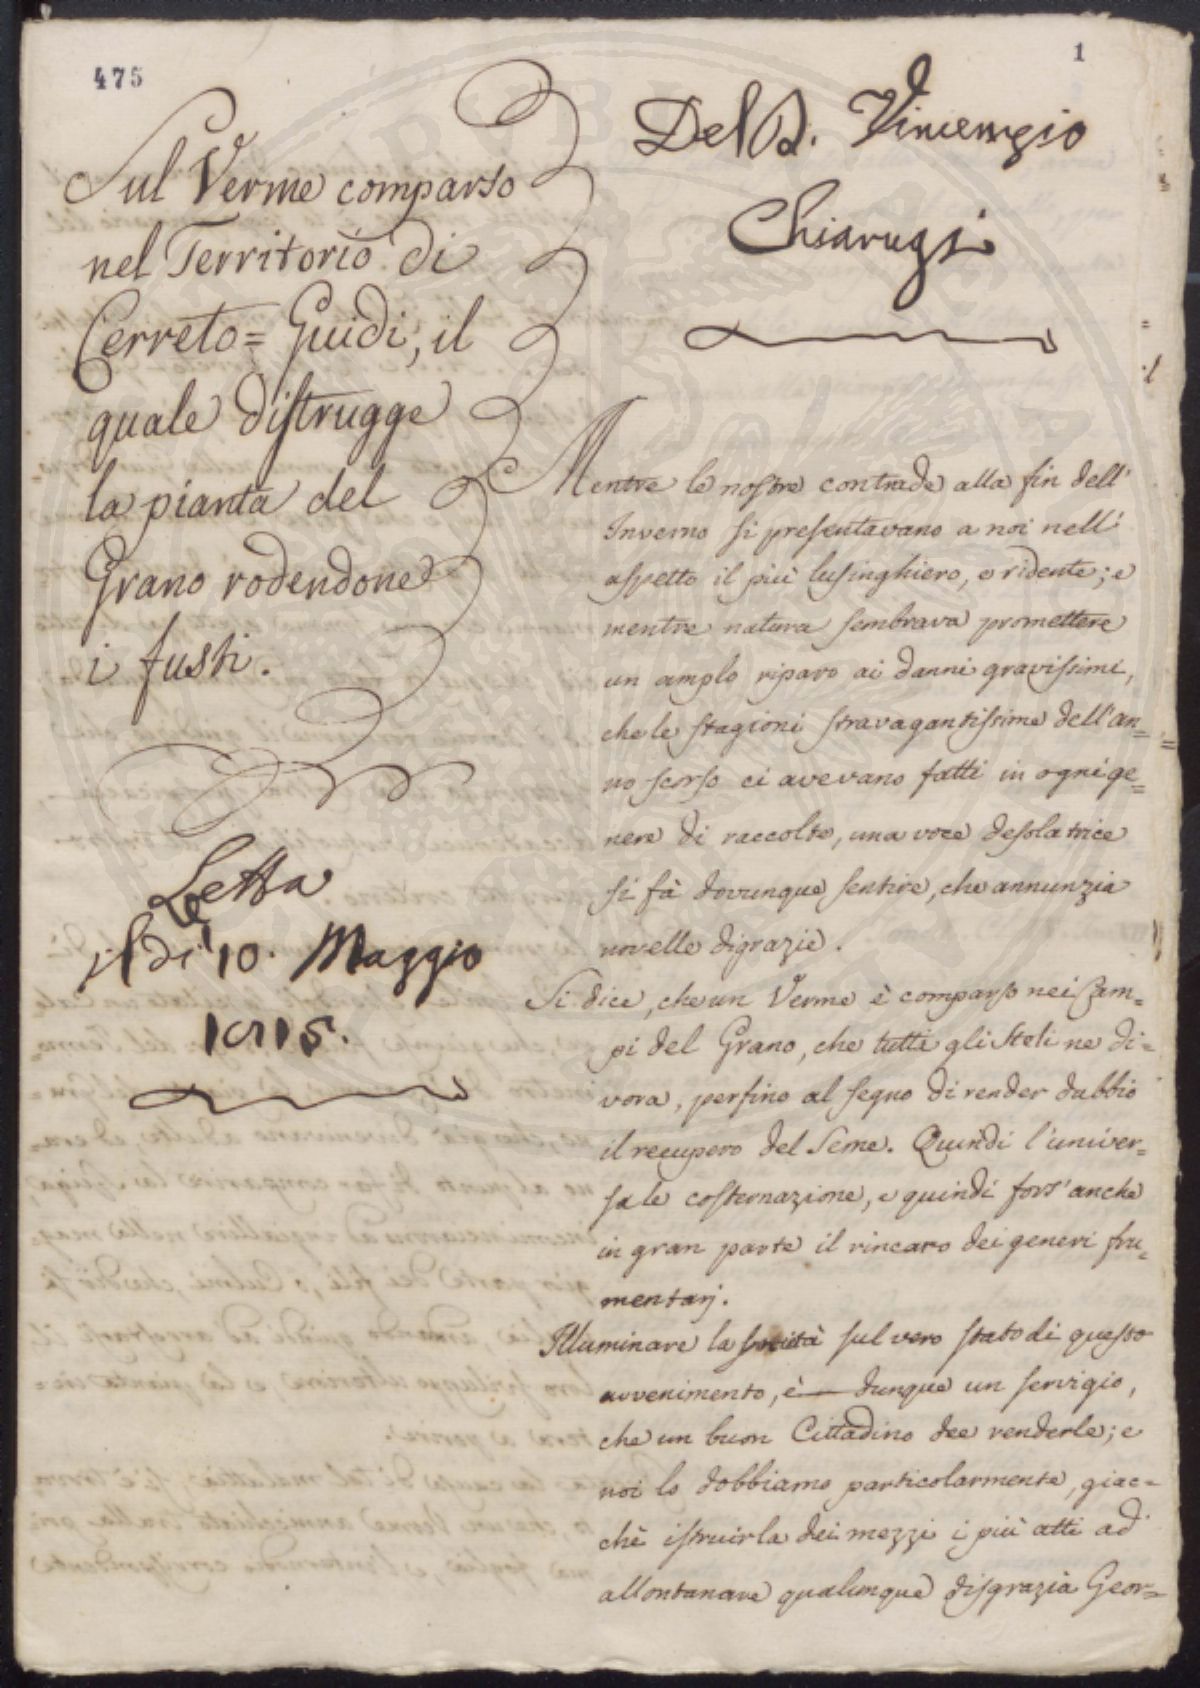 475
1
Sul Verme comparso
nel Territorio di
Cerreto= Guidi, il
quale distrugge
la pianta del
Grano rodendone
i fusti.
Letta
il dì 10. Maggio
Del D. Vincenzio
Chiarugi
Mentre le nostre contrade alla fin dell'
Inverno si presentavano a noi nell'
aspetto il più lusinghiero, e ridente; e
mentre natura sembrava promettere
un amplo riparo ai danni gravissimi,
che le stagioni stravagantissime dell'an=
no scorso ci avevano fatti in ogni ge=
nere di raccolte, una voce desolatrice
si fà dovunque sentire, che annunzia
novelle digrazie.
Si dice, che un Verme è comparso nei Cam=
pi del Grano, che tutti gli Steli ne di=
vora, perfino al segno di render dubbio
il recupero del Seme. Quindi l'univer=
sale costernazione, e quindi fors'anche
in gran parte il rincaro dei generi fru=
mentarj.
Illuminare la società sul vero stato di questo
avvenimento, è dunque un servigio,
che un buon Cittadino dee renderle; e
noi lo dobbiamo particolarmente, giac=
chè istruirla dei mezzi i più atti ad
allontanare qualunque disgrazia Geor=